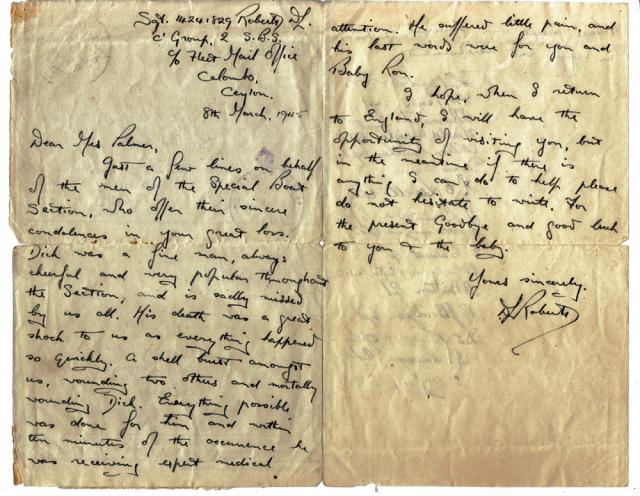 Sgt. 14241829 Roberts D.L.
'C' Group, 2 S.B.S.
c/o Fleet Mail Office
Colombo,
Ceylon.
8th March, 1945
Dear Mrs Palmer,
Just a few lines on behalf
of the men of the Special Boat
Section, who offer their sincere
condolences in your great loss.
Dick was a fine man, always
cheerful and very popular throughout
the Section, and is sadly missed
by us all. His death was a great
shock to us as everything happened
so quickly. A shell burst amongst
us, wounding two others and mortally
wounding Dick. Everything possible
was done for him and within
ten minutes of the occurrence he
was receiving expert medical
attention. He suffered little pain, and
his last words were for you and
Baby Ron.
I hope, when I return
to England, I will have the
opportunity of visiting you, but
in the meantime if there is
anything I can do to help please
do not hesitate to write. For
the present Goodbye and good luck
to you & the baby.
Yours sincerely.
D.L. Roberts